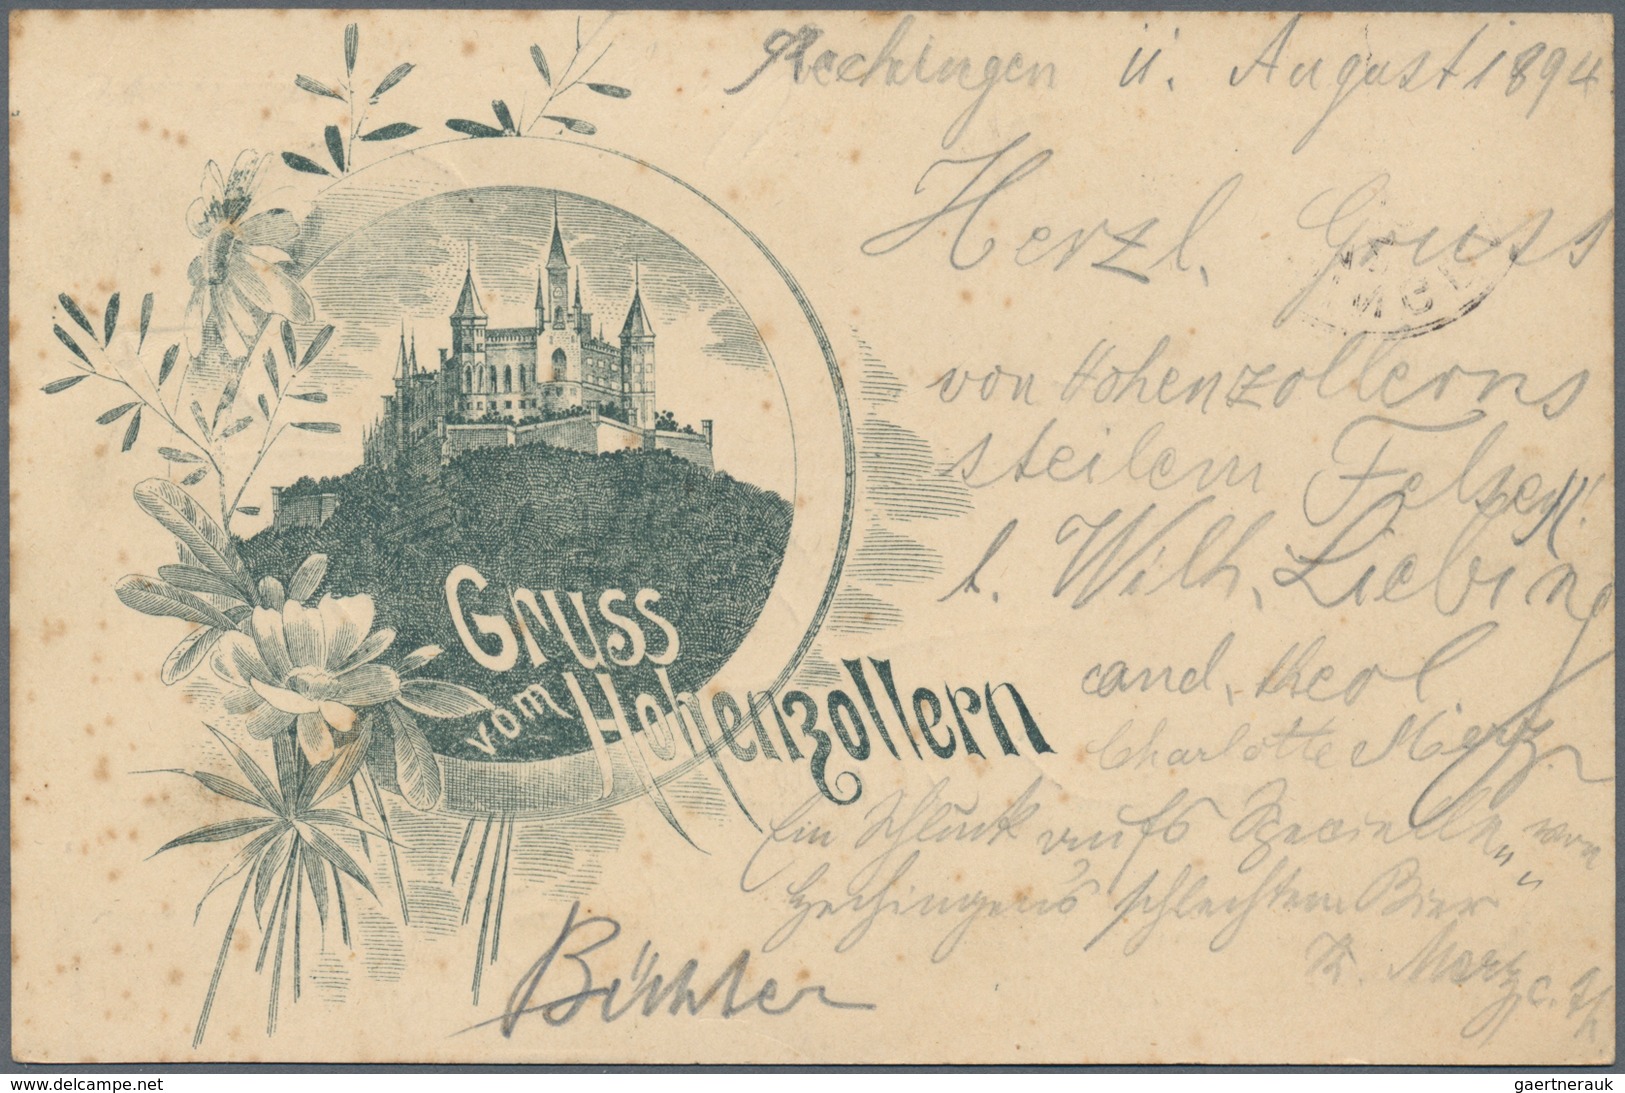 Hechingen 11. August 1894
Herzl. Gruss
von Hohenzollerns
steilem Felsen
Wilh. Liebing
cand. theol
Charlotte Merz
Ein Schluck aufs Specielle von
Hechingens "schlechtem Bier"
K. Merz c. th
Büchler
Gruss
vom Hohenzollern
www.delcampe.net
gaertnerauk